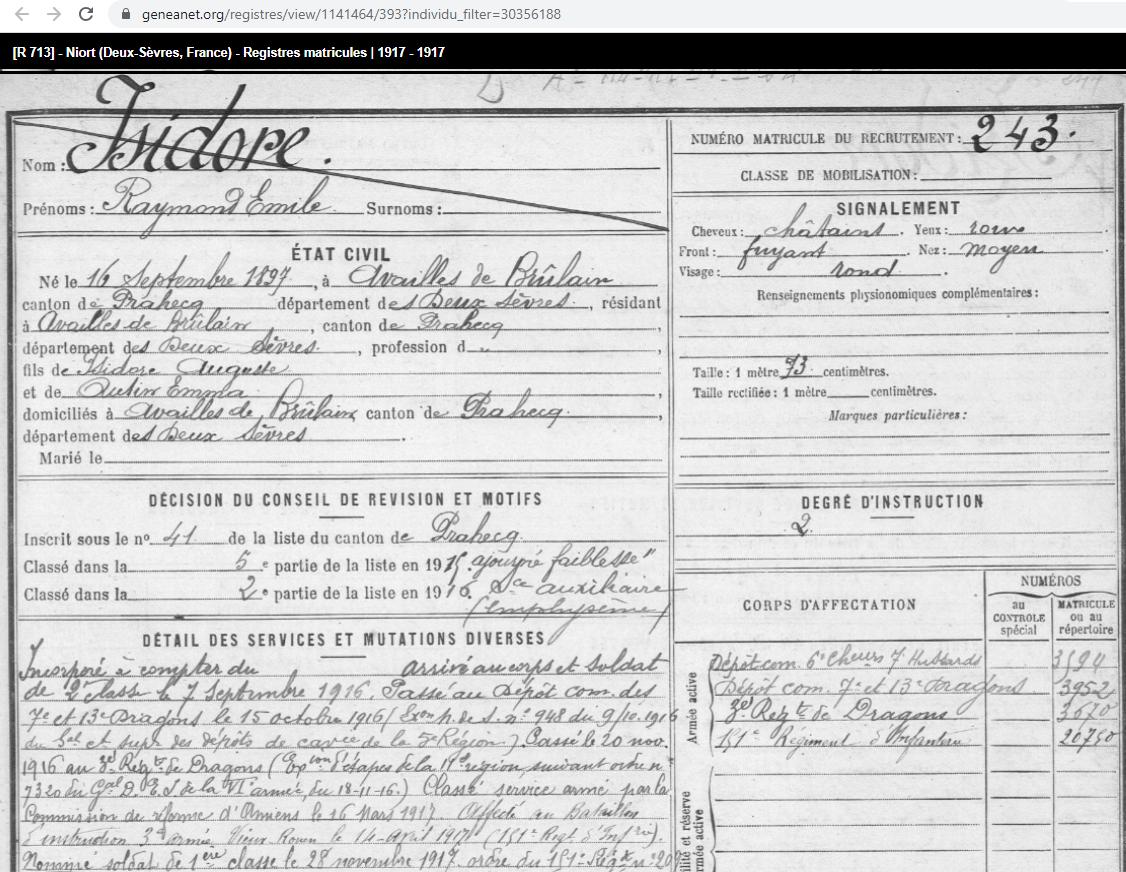 geneanet.org/registres/view/1141464/393?individu_filter=30356188
[R 713] - Niort (Deux-Sèvres, France) - Registres matricules | 1917 - 1917
Nom : Isidore.
Prénoms : Raymond Emile Surnoms :
NUMÉRO MATRICULE DU RECRUTEMENT : 243.
CLASSE DE MOBILISATION :
ÉTAT CIVIL
Né le 16 Septembre 1897, à Availles de Brûlain
canton de Prahecq département des Deux Sèvres, résidant
à Availles de Brûlain, canton de Prahecq,
département des Deux Sèvres, profession d „,
fils de Isidore Auguste
et de Emma,
domiciliés à Availles de Brûlain canton de Prahecq.
département des Deux Sèvres.
Marié le
SIGNALEMENT
Cheveux : châtains. Yeux : roux
Front : fuyant. Nez : moyen
Visage : rond.
Renseignements physionomiques complémentaires :
Taille : 1 mètre 73 centimètres.
Taille rectifiée : 1 mètre centimètres.
Marques particulières :
DÉCISION DU CONSEIL DE REVISION ET MOTIFS
Inscrit sous le nº 41 de la liste du canton de Prahecq.
Classé dans la 5 e partie de la liste en 1915. ajourné faiblesse"
Classé dans la 2 e partie de la liste en 1916. Sce auxiliaire
(emphysème)
DEGRÉ D'INSTRUCTION
2
DÉTAIL DES SERVICES ET MUTATIONS DIVERSES
Incorporé à compter du arrivé au corps et soldat
de 2e classe le 7 Septembre 1916. Passé au Dépôt com. des
7e et 13e Dragons le 15 octobre 1916 (Exon n. de s. nº 948 du 9/10.1916
du Gal et supr des dépôts de cavie de la 5e Région.) Passé le 20 nov.
1916 au 3e Régt de Dragons (Expon d'étapes de la 19e région, suivant ordre nº
7320 du Gal D. E. S de la VIe armée, du 18-11-16.) Classé service armé par la
Commission de réforme d'Amiens le 16 Mars 1917. Affecté au Bataillon
d'instruction 3e armée Vieux Rouen le 14 avril 1917 (151e Regt d'Infrie).
Nommé soldat de 1ère classe le 28 novembre 1917, ordre du 151e Régt nº 20
CORPS D'AFFECTATION
NUMÉROS
au CONTROLE spécial
MATRICULE ou au répertoire
Armée active
Dépôt com. 6e Cheurs 7e Hussards 3594
Dépôt com. 7e et 13e Dragons 3952
3e Régt de Dragons 3670
151e Régiment d'Infanterie 20750